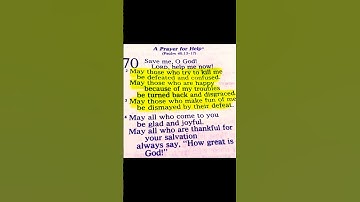 A Prayer for Help
(Psalm 40.13-17)
70 Save me, O God!
LORD, help me now!
2 May those who try to kill me
be defeated and confused.
May those who are happy
because of my troubles
be turned back and disgraced.
3 May those who make fun of me
be dismayed by their defeat.
4 May all who come to you
be glad and joyful.
May all who are thankful for
your salvation
always say, "How great is
God!"